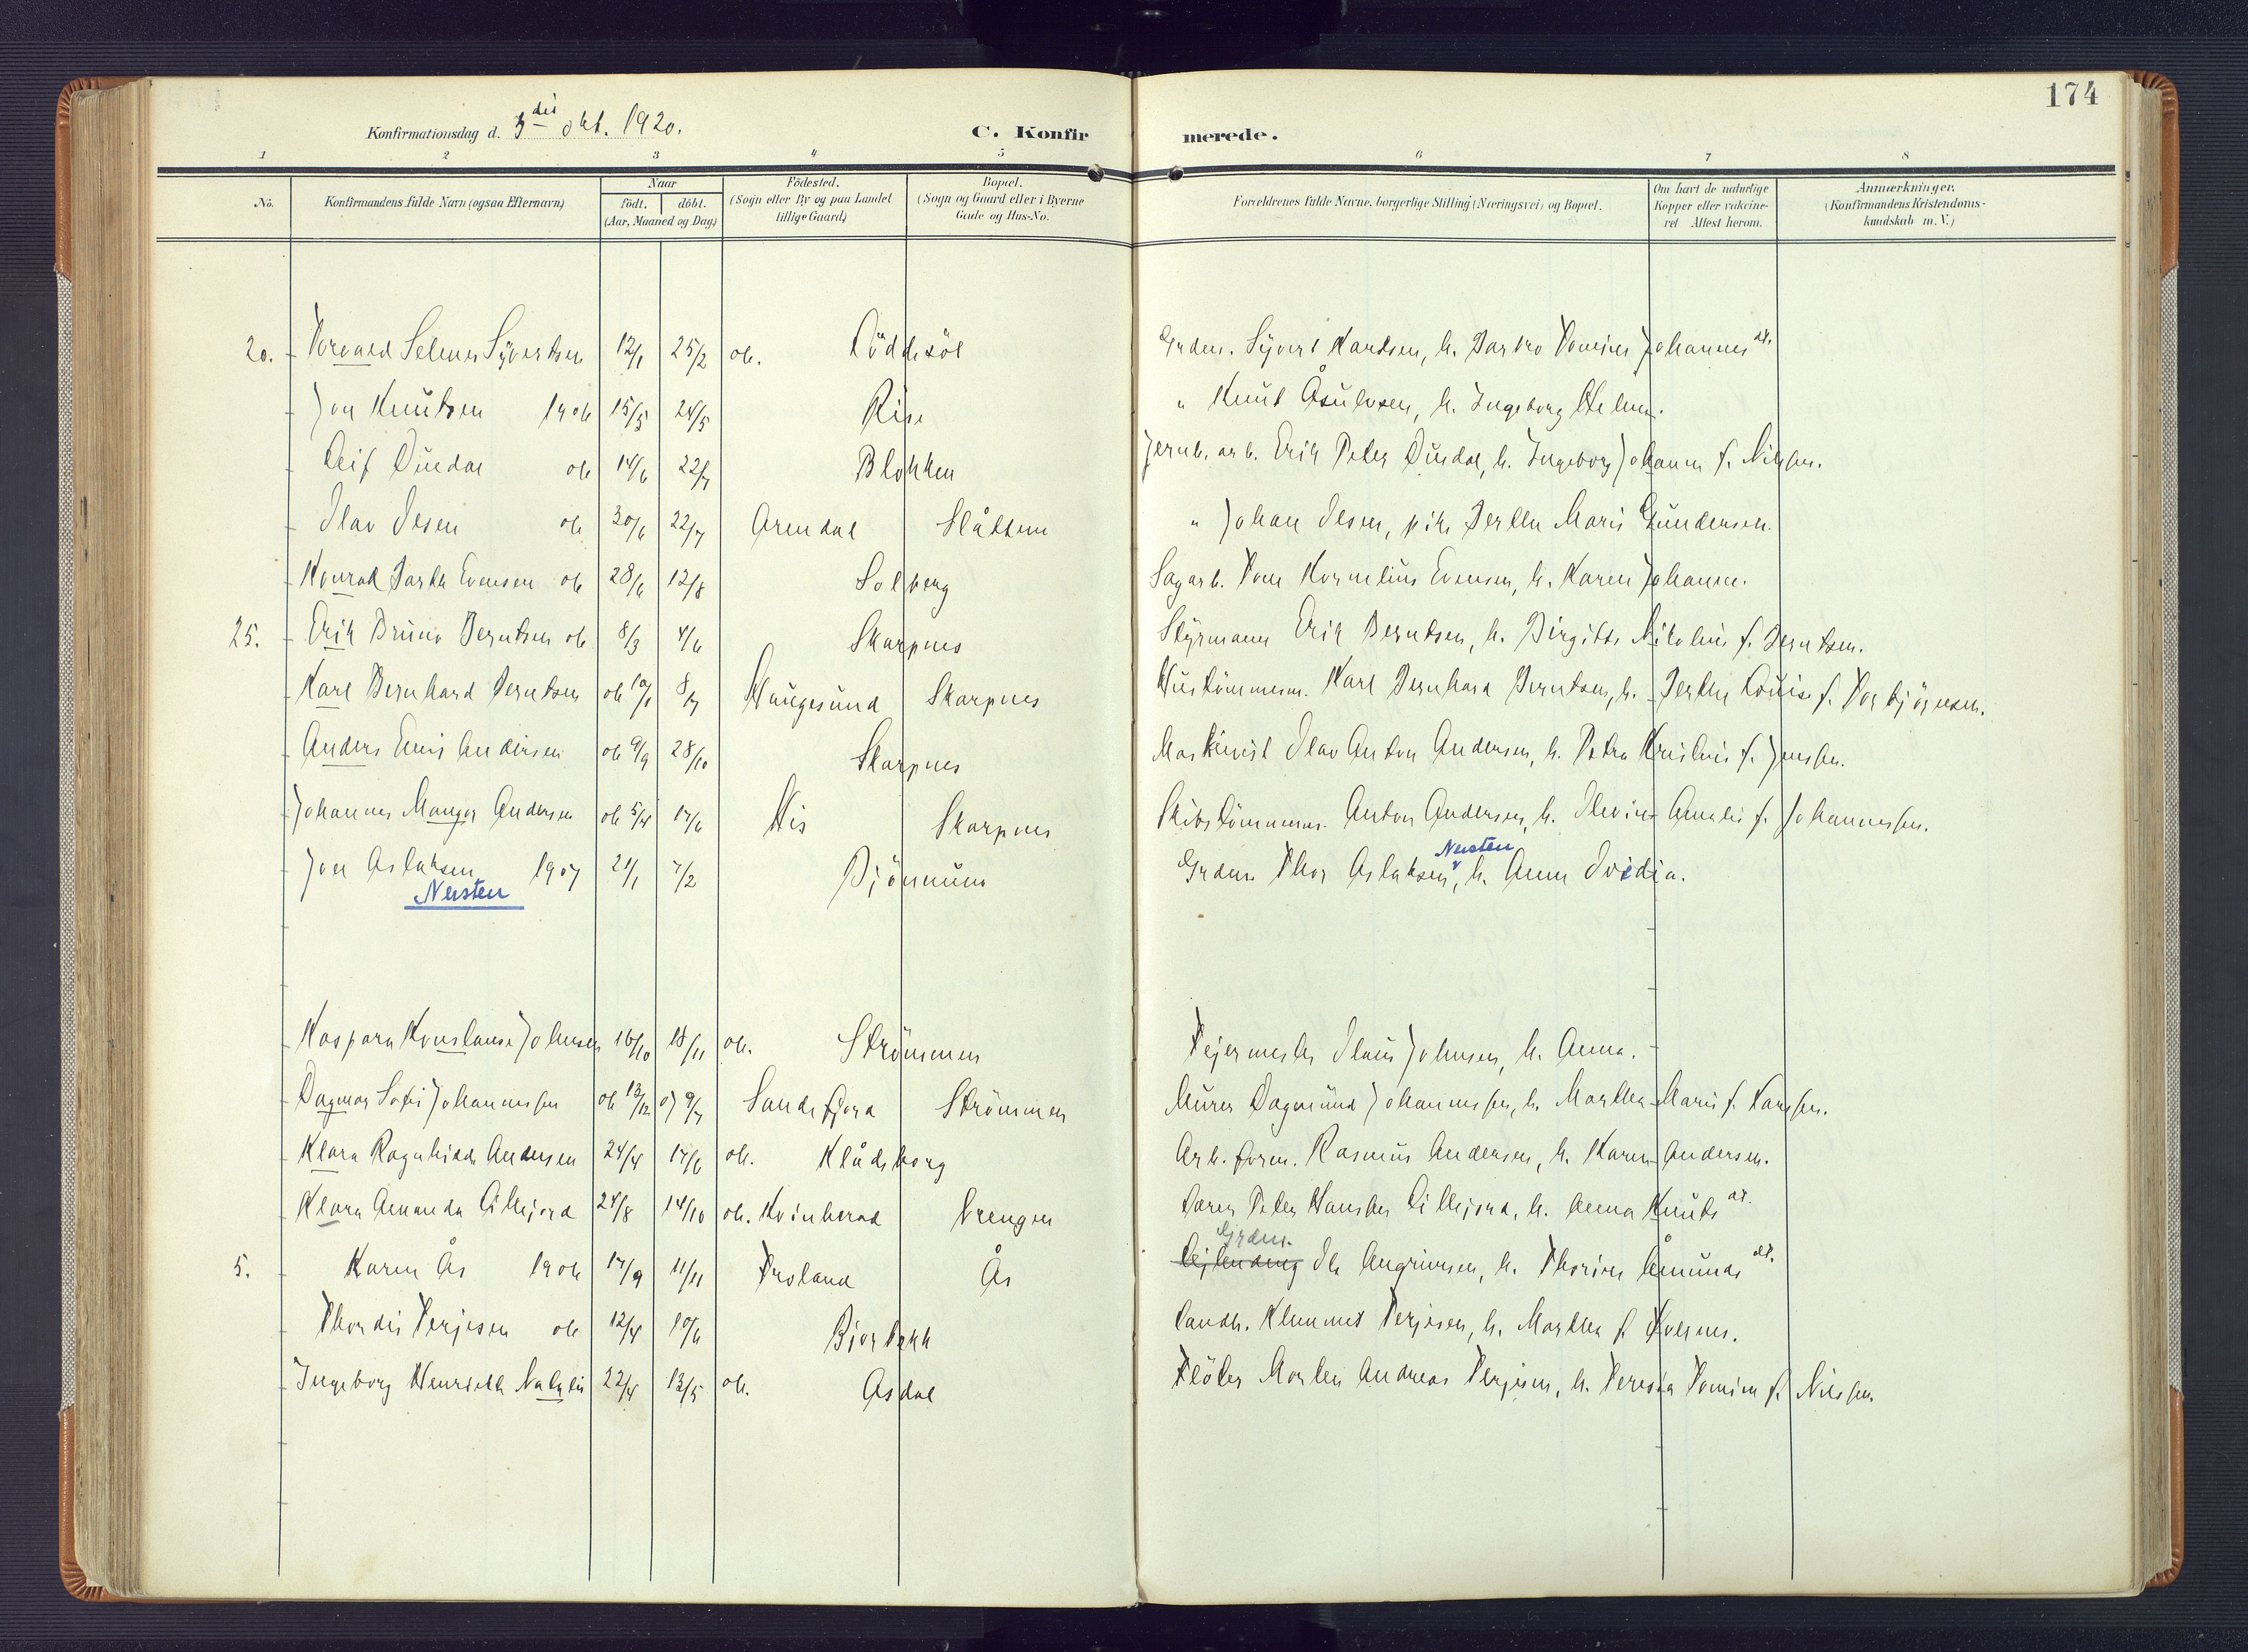 174
Konfirmationsdag d. 3die Okt. 1920.
C. Konfirmerede.
1 2 3 4 5 6 7 8
No.
Konfirmandens fulde Navn (ogsaa Efternavn)
Naar
födt. döbt.
(Aar, Maaned og Dag)
Födested.
(Sogn eller By og paa Landet
tillige Gaard)
Bopæl.
(Sogn og Gaard eller i Byerne
Gade og Hus-No.
Forældrenes fulde Navne, borgerlige Stilling (Næringsvei) og Bopæl.
Om havt de naturlige
Kopper eller vakcine-
ret Attest herom.
Anmærkninger.
(Konfirmandens Kristendoms-
kundskab m. V.)
20. Torvald Selmer Syvertsen 12/1 25/2 06. Løddesøl Grdm. Syvert
Jon Knutsen 1906 15/3 24/5 Rise " Knut Åsulvsen, h. Ingeborg
Leif Duedal 06 14/6 22/7 Blokken Jernb. arb. Erik Peter Duedal, h. Ingeborg Johanne f. Nilssen.
Olav Olsen 06 30/6 22/7 Arendal Slåttene " Johan Olsen, pike Berthe Marie Gundersen.
Konrad Evensen 06 28/6 12/8 Solberg Sagarb. Kornelius Evensen, h. Karen Johanne.
25. Erik Bruno Berntsen 06 8/3 4/6 Skarpnes Styrmann Erik Berntsen, h. Birgitte Nikoline f. Berntsen.
Karl Bernhard Berntsen 06 10/1 8/7 Haugesund Skarpnes Hustömmerm. Karl Bernhard Berntsen, h. Berthe Louise f. Torbjørnsen.
Anders Emil Andersen 06 9/9 28/10 Skarpnes Maskinist Olav Anton Andersen, h. Petra Kristine f. Jenssen.
Johannes Manger Andersen 06 5/4 17/6 His Skarpnes Skibstömmerm. Anton Andersen, h. Amalie f. Johannessen.
Jon Aslaksen 1907 21/1 7/2 Bjönnum Grdm. Thor Aslaksen, Neisten h. Anne
Neisten
Kaspara Konstanse Johnsen 16/10 18/11 06. Strömmen Johnsen, h. Anna.
Dagmar Sofie Johannessen 06 13/12 07 9/7 Sandefjord Strömmen Murer Dagmund Johannessen, h. Marthe Marie f. Larssen.
Klara Ragnhilda Andersen 24/4 17/6 06. Klådeborg Arb. form. Rasmus Andersen, h. Karen Andersen.
Klara Amanda Lillejord 24/8 14/10 06. Kvinherad Vrengen Lærer Peter Lillejord, h. Anna Knuts dt.
5. Karen Ås 1906 17/9 11/11 Froland Ås Grdm. Ole h. Thorine Åmunds dt.
Thordis Terjesen 06 12/4 10/6 Bjorbekk Landh. Klemmet Terjesen, h. Marthe f.
Ingeborg Henriette Natalie 22/4 13/5 06. Asdal Fløter Morten Andreas Terjesen, h. Teresia f. Nilssen.